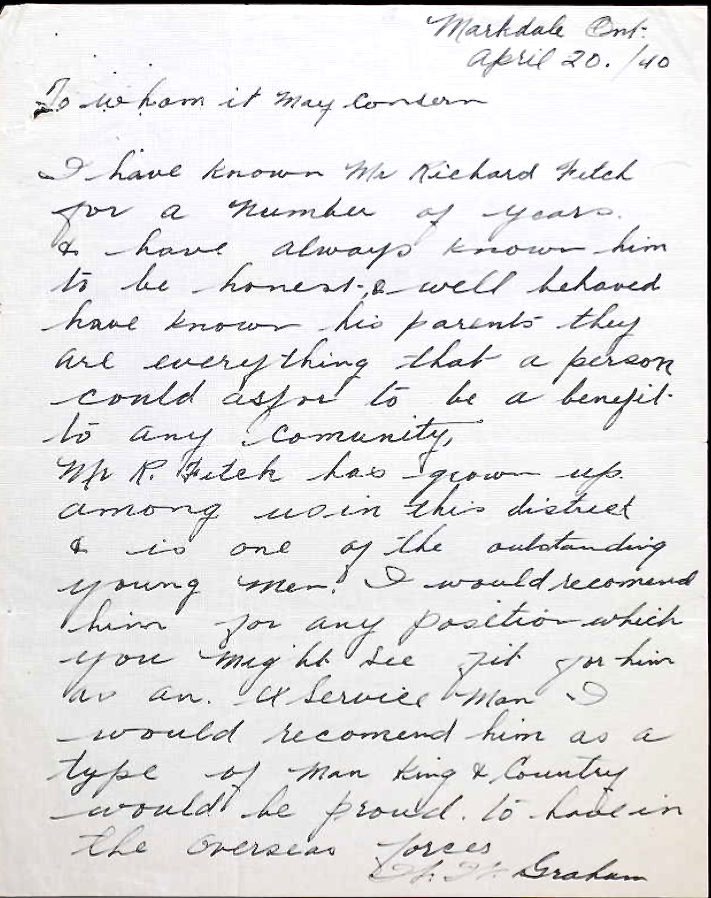 Markdale Ont.
April 20./40
To whom it May Consern
I have known Mr Richard Fetch
for a number of years.
& have always known him
to be honest, & well behaved
have known his parents they
are everything that a person
could asfor to be a benefit
to any comunity,
Mr R. Fetch has grown up
among us in this district
& is one of the outstanding
young Men. I would recomend
him for any position which
you might see fit for him
as an. Service Man I
would recomend him as a
type of Man King & Country
would be proud. to have in
the Overseas forces
Graham